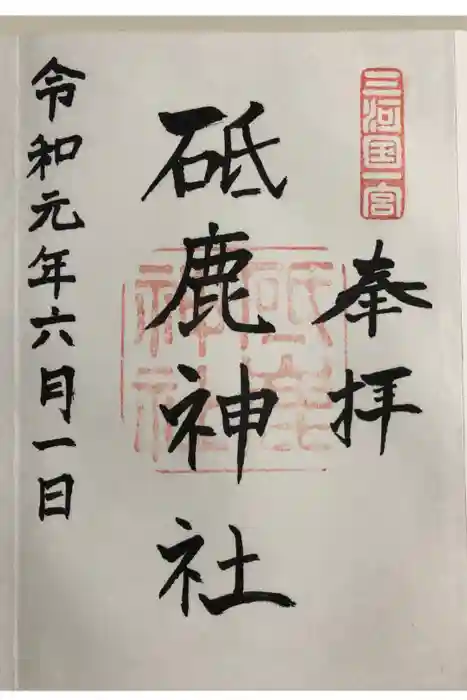 三河国一宮
奉拝
砥鹿神社
砥鹿神社
令和元年六月一日